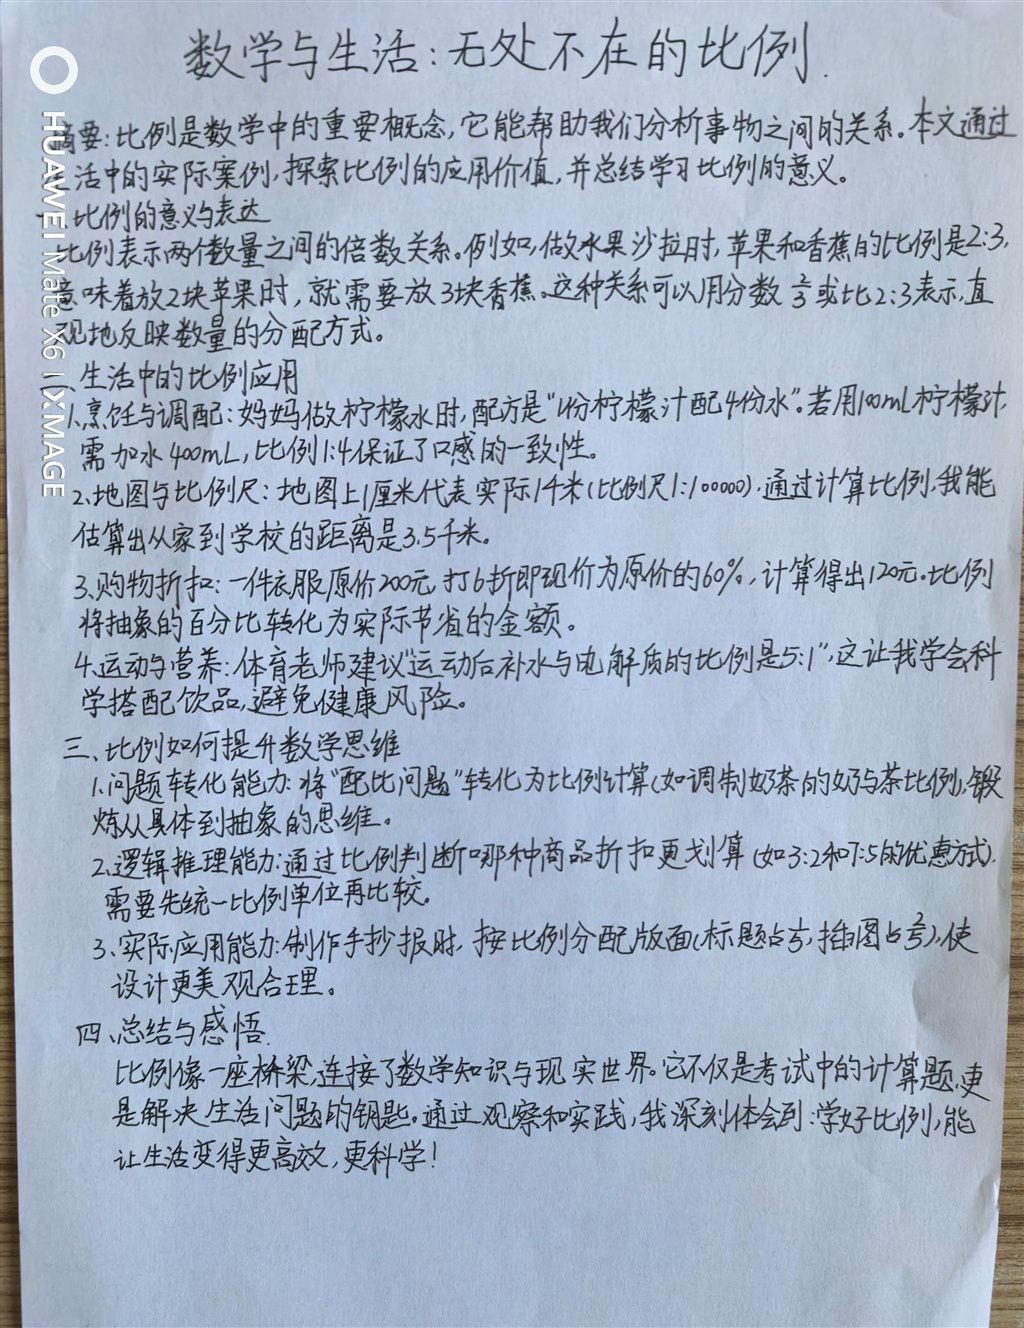 数学与生活:无处不在的比例.
摘要:比例是数学中的重要概念,它能帮助我们分析事物之间的关系。本文通过
活中的实际案例,探索比例的应用价值,并总结学习比例的意义。
比例的意义与表达
比例表示两个数量之间的倍数关系。例如,做水果沙拉时,苹果和香蕉的比例是2:3,
意味着放2块苹果时,就需要放3块香蕉。这种关系可以用分数2/3或比2:3表示,直
观地反映数量的分配方式。
、生活中的比例应用
1.烹饪与调配:妈妈做柠檬水时,配方是“1份柠檬汁配4份水”。若用100mL柠檬汁,
需加水400mL,比例1:4保证了口感的一致性。
2.地图与比例尺:地图上1厘米代表实际1千米(比例尺1:100000),通过计算比例,我能
估算出从家到学校的距离是3.5千米。
3.购物折扣:一件衣服原价200元,打6折即现价为原价的60%,计算得出120元。比例
将抽象的百分比转化为实际节省的金额。
4.运动与营养:体育老师建议“运动后补水与电解质的比例是5:1”,这让我学会科
学搭配饮品,避免健康风险。
三、比例如何提升数学思维
1.问题转化能力:将“配比问题”转化为比例计算(如调制奶茶的奶与茶比例),锻
炼从具体到抽象的思维。
2.逻辑推理能力:通过比例判断哪种商品折扣更划算(如3:2和7:5的优惠方式),
需要先统一比例单位再比较。
3.实际应用能力:制作手抄报时,按比例分配版面(标题占,插图占),使
设计更美观合理。
四、总结与感悟.
比例像一座桥梁,连接了数学知识与现实世界。它不仅是考试中的计算题,更
是解决生活问题的钥匙。通过观察和实践,我深刻体会到:学好比例,能
让生活变得更高效,更科学!
HUAWEI Mate X6 | XMAGE